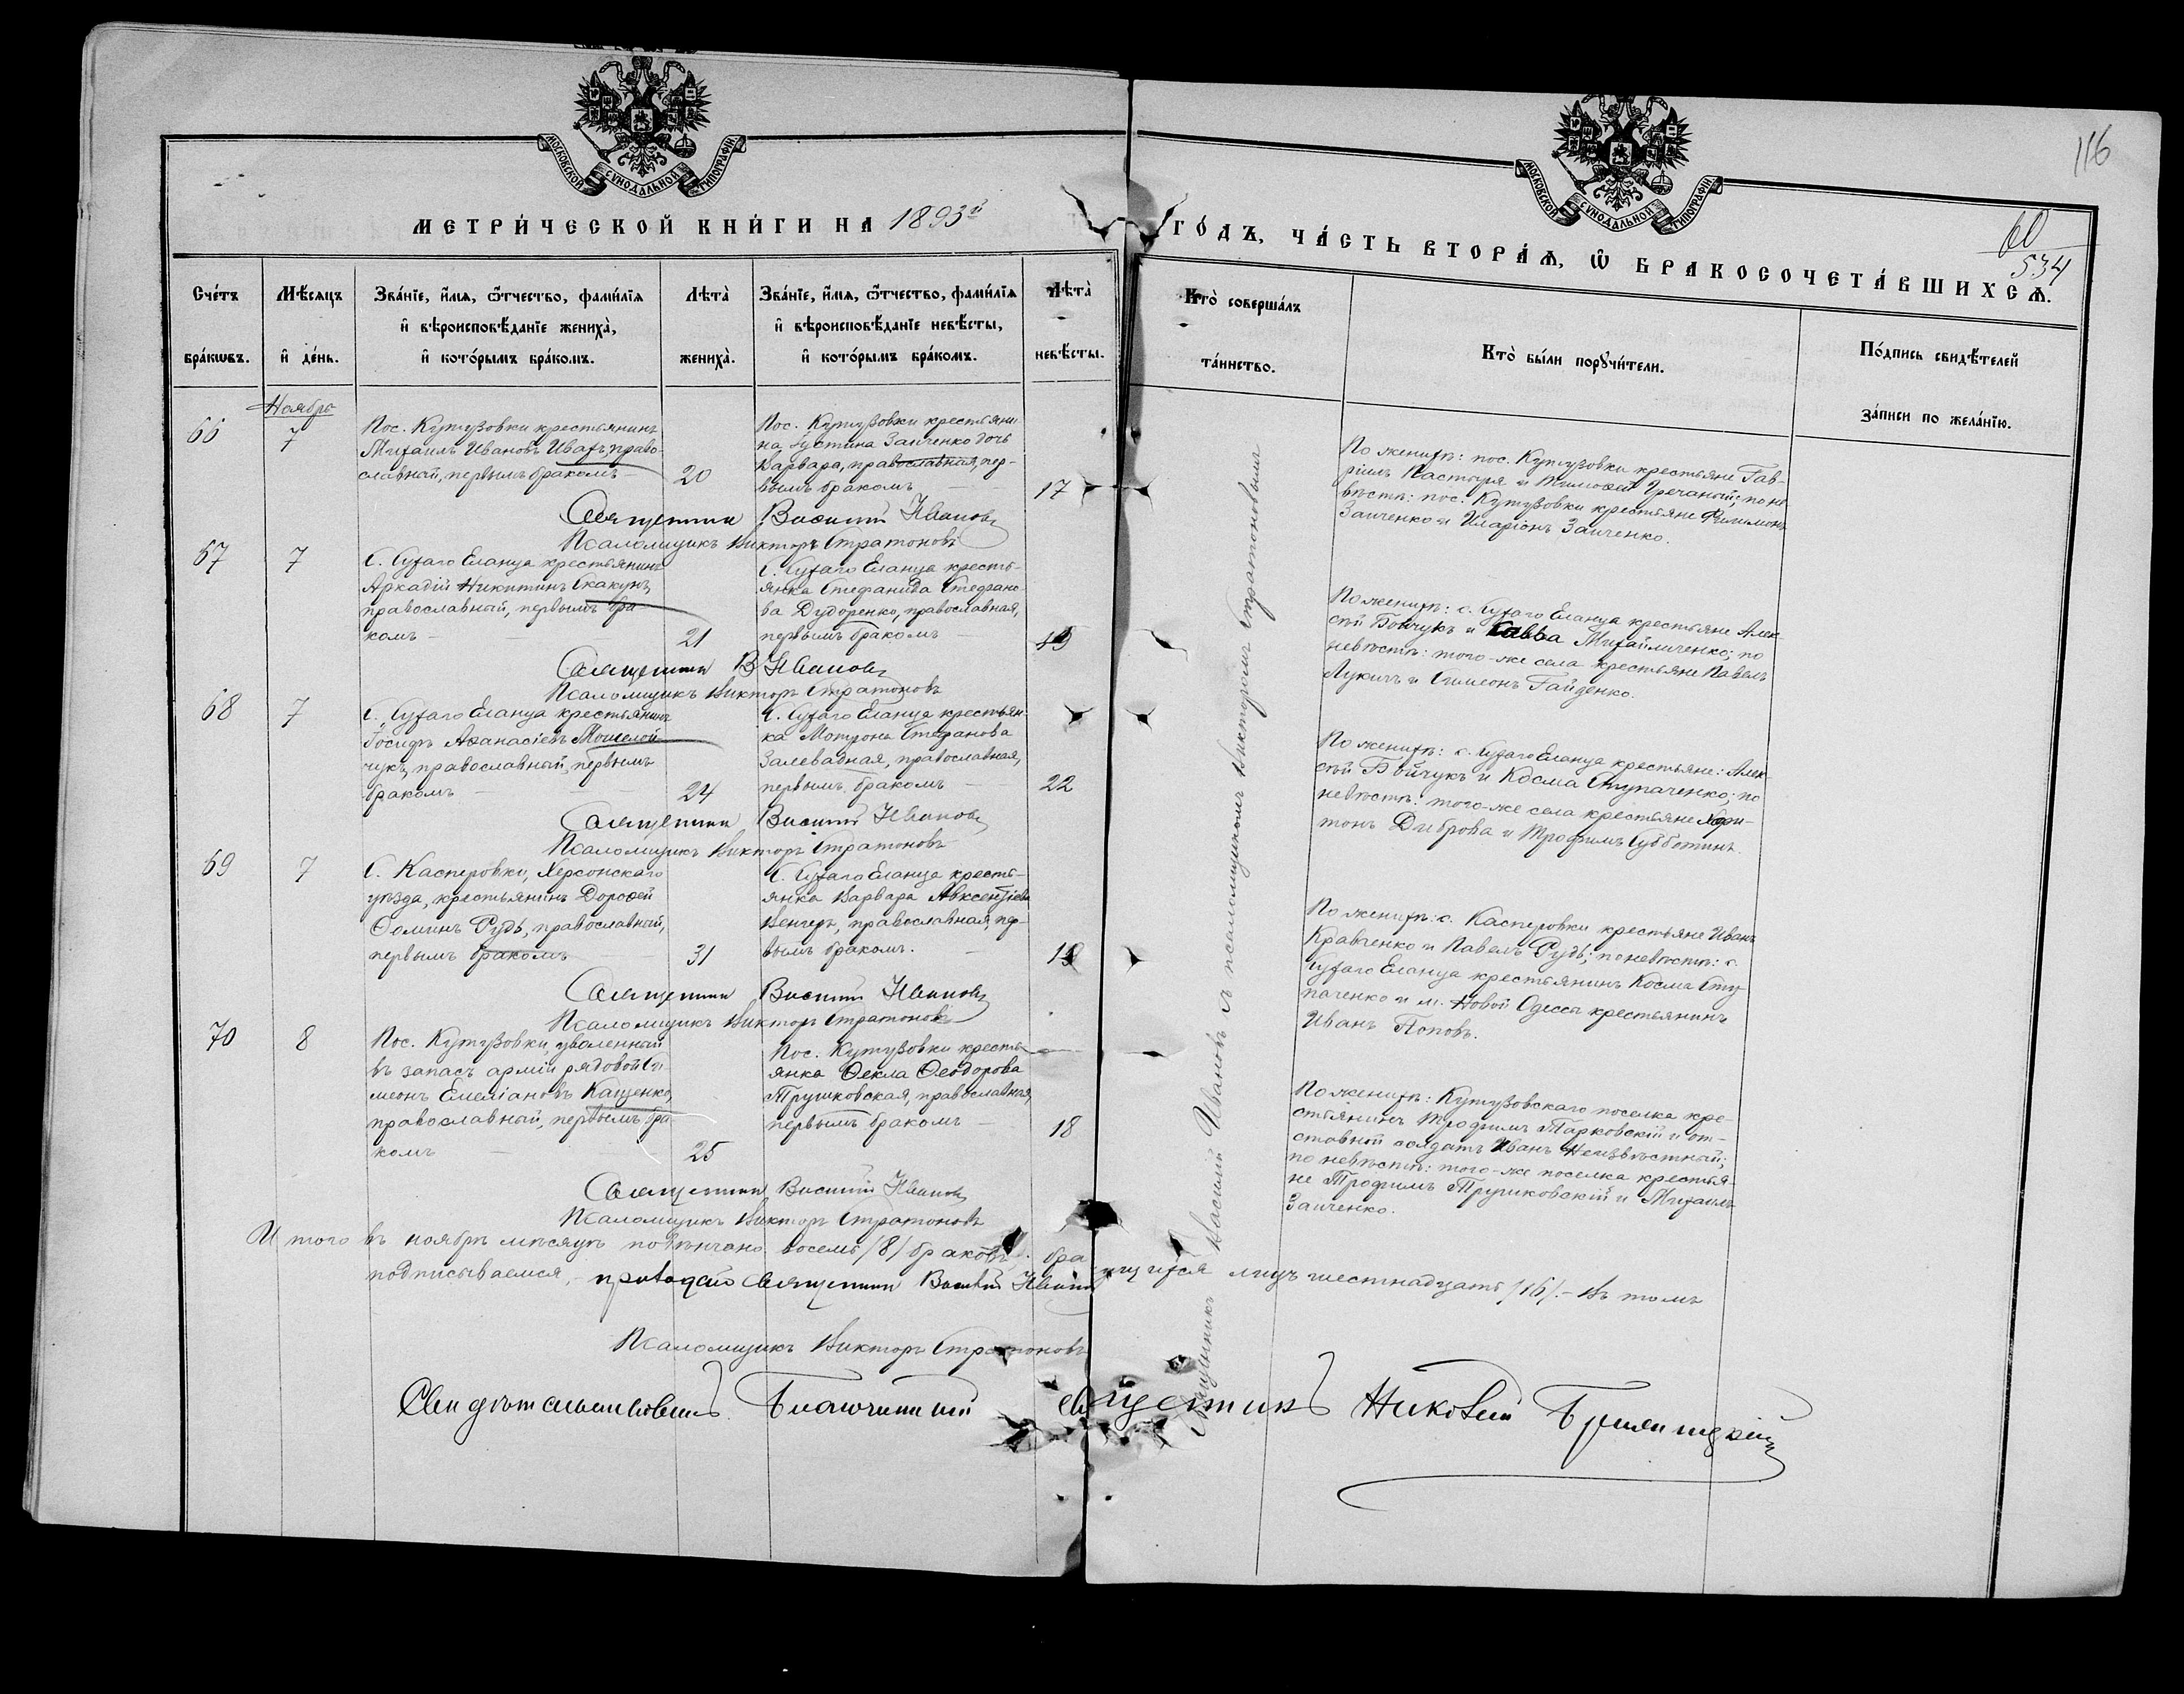 116
60
534
МОСКОВСКОЙ СѴНОДАЛЬНОЙ ТИПОГРАФІИ.
МОСКОВСКОЙ СѴНОДАЛЬНОЙ ТИПОГРАФІИ.
МЕТРИ́ЧЕСКОЙ КНИ́ГИ НА 1893й ГО́ДЪ, ЧА́СТЬ ВТОРА́Ѧ, Ѽ БРАКОСОЧЕТА́ВШИХСѦ.
Сче́тъ бра́кѡвъ.
Мѣ́сяцъ и҆ де́нь.
Зва́нїе, и҆́мѧ, ѻ҆́тчество, фами́лїѧ
и҆ вѣроисповѣ́данїе жениха̀,
и҆ кото́рымъ бра́комъ.
Лѣта̀ жениха̀.
Зва́нїе, и҆́мѧ, ѻ҆́тчество, фами́лїѧ
и҆ вѣроисповѣ́данїе невѣ́сты,
и҆ кото́рымъ бра́комъ.
Лѣта̀ невѣ́сты.
Кто̀ соверша́лъ
та́инство.
Кто̀ бы́ли порꙋчи́тели.
По́дпись свидѣ́телей
за́писи по жела́нїю.
Ноябрь
66
7
Пос. Кутузовки крестьянинъ
Михаилъ Ивановъ Ивахъ, право-
славный, первымъ бракомъ
20
Пос. Кутузовки крестьяни-
на Густина Заиченко дочь
Варвара, православная, пер-
вымъ бракомъ
17
По женихѣ: пос. Кутузовки крестьяне Гав-
ріилъ Кастыря и Тимофей Гречаный; по не-
вѣстѣ: пос. Кутузовки крестьяне Филимонъ
Заиченко и Иларіонъ Заиченко.
Священникъ Василій Ивановъ
Псаломщикъ Викторъ Стратоновъ
67
7
С. Сухаго Еланца крестьянинъ
Аркадій Никитинъ Скакунъ,
православный, первымъ бра-
комъ
21
С. Сухаго Еланца кресть-
янка Стефанида Стефано-
ва Дудоренко, православная,
первымъ бракомъ
19
По женихѣ: с. Сухаго Еланца крестьяне Алек-
сѣй Бойчукъ и Савва Михайличенко; по
невѣстѣ: того-же села крестьяне Павелъ
Лукичъ и Симеонъ Гайденко.
Священникъ В Ивановъ
Псаломщикъ Викторъ Стратоновъ
68
7
С. Сухаго Еланца крестьянинъ
Іосифъ Аѳанасіевъ Мошелой-
чукъ, православный, первымъ
бракомъ
24
С. Сухаго Еланца крестьян-
ка Мотрона Стефанова
Залевадная, православная,
первымъ бракомъ
22
По женихѣ: с. Сухаго Еланца крестьяне: Алек-
сѣй Бойчукъ и Косма Ступаченко; по
невѣстѣ: того-же села крестьяне Хари-
тонъ Диброва и Трофимъ Субботинъ.
Священникъ Василій Ивановъ
Псаломщикъ Викторъ Стратоновъ
69
7
С. Касперовки, Херсонскаго
уѣзда, крестьянинъ Дороѳей
Ѳоминъ Рудь, православный,
первымъ бракомъ
31
С. Сухаго Еланца кресть-
янка Варвара Авксентіева
Венгеръ, православная, пер-
вымъ бракомъ.
19
По женихѣ: с. Касперовки крестьяне Иванъ
Кравченко и Павелъ Рудь; по невѣстѣ: с.
Сухаго Еланца крестьянинъ Косма Сту-
паченко и м. Новой Одессы крестьянинъ
Иванъ Поповъ.
Священникъ Василій Ивановъ
Псаломщикъ Викторъ Стратоновъ
70
8
Пос. Кутузовки, уволенный
въ запасъ арміи рядовой Си-
меонъ Емеліановъ Кащенко,
православный, первымъ бра-
комъ
25
Пос. Кутузовки кресть-
янка Ѳекла Ѳеодорова
Трушковская, православная,
первымъ бракомъ
18
По женихѣ: Кутузовскаго поселка кре-
стьянинъ Трофимъ Тарковскій и от-
ставной солдатъ Иванъ Неизвѣстный;
по невѣстѣ: того-же поселка крестья-
не Трофимъ Трушковскій и Михаилъ
Заиченко.
Священникъ Василій Ивановъ
Псаломщикъ Викторъ Стратоновъ
Священникъ Василій Ивановъ съ псаломщикомъ Викторомъ Стратоновымъ
Итого въ ноябрѣ мѣсяцѣ повѣнчано восемь /8/ браковъ, бра щихся лицъ шестнадцать /16/. – Въ томъ
подписываемся, Священникъ Василій Ивановъ
Псаломщикъ Викторъ Стратоновъ
Свидѣтельствовалъ Благочинный священникъ Николай